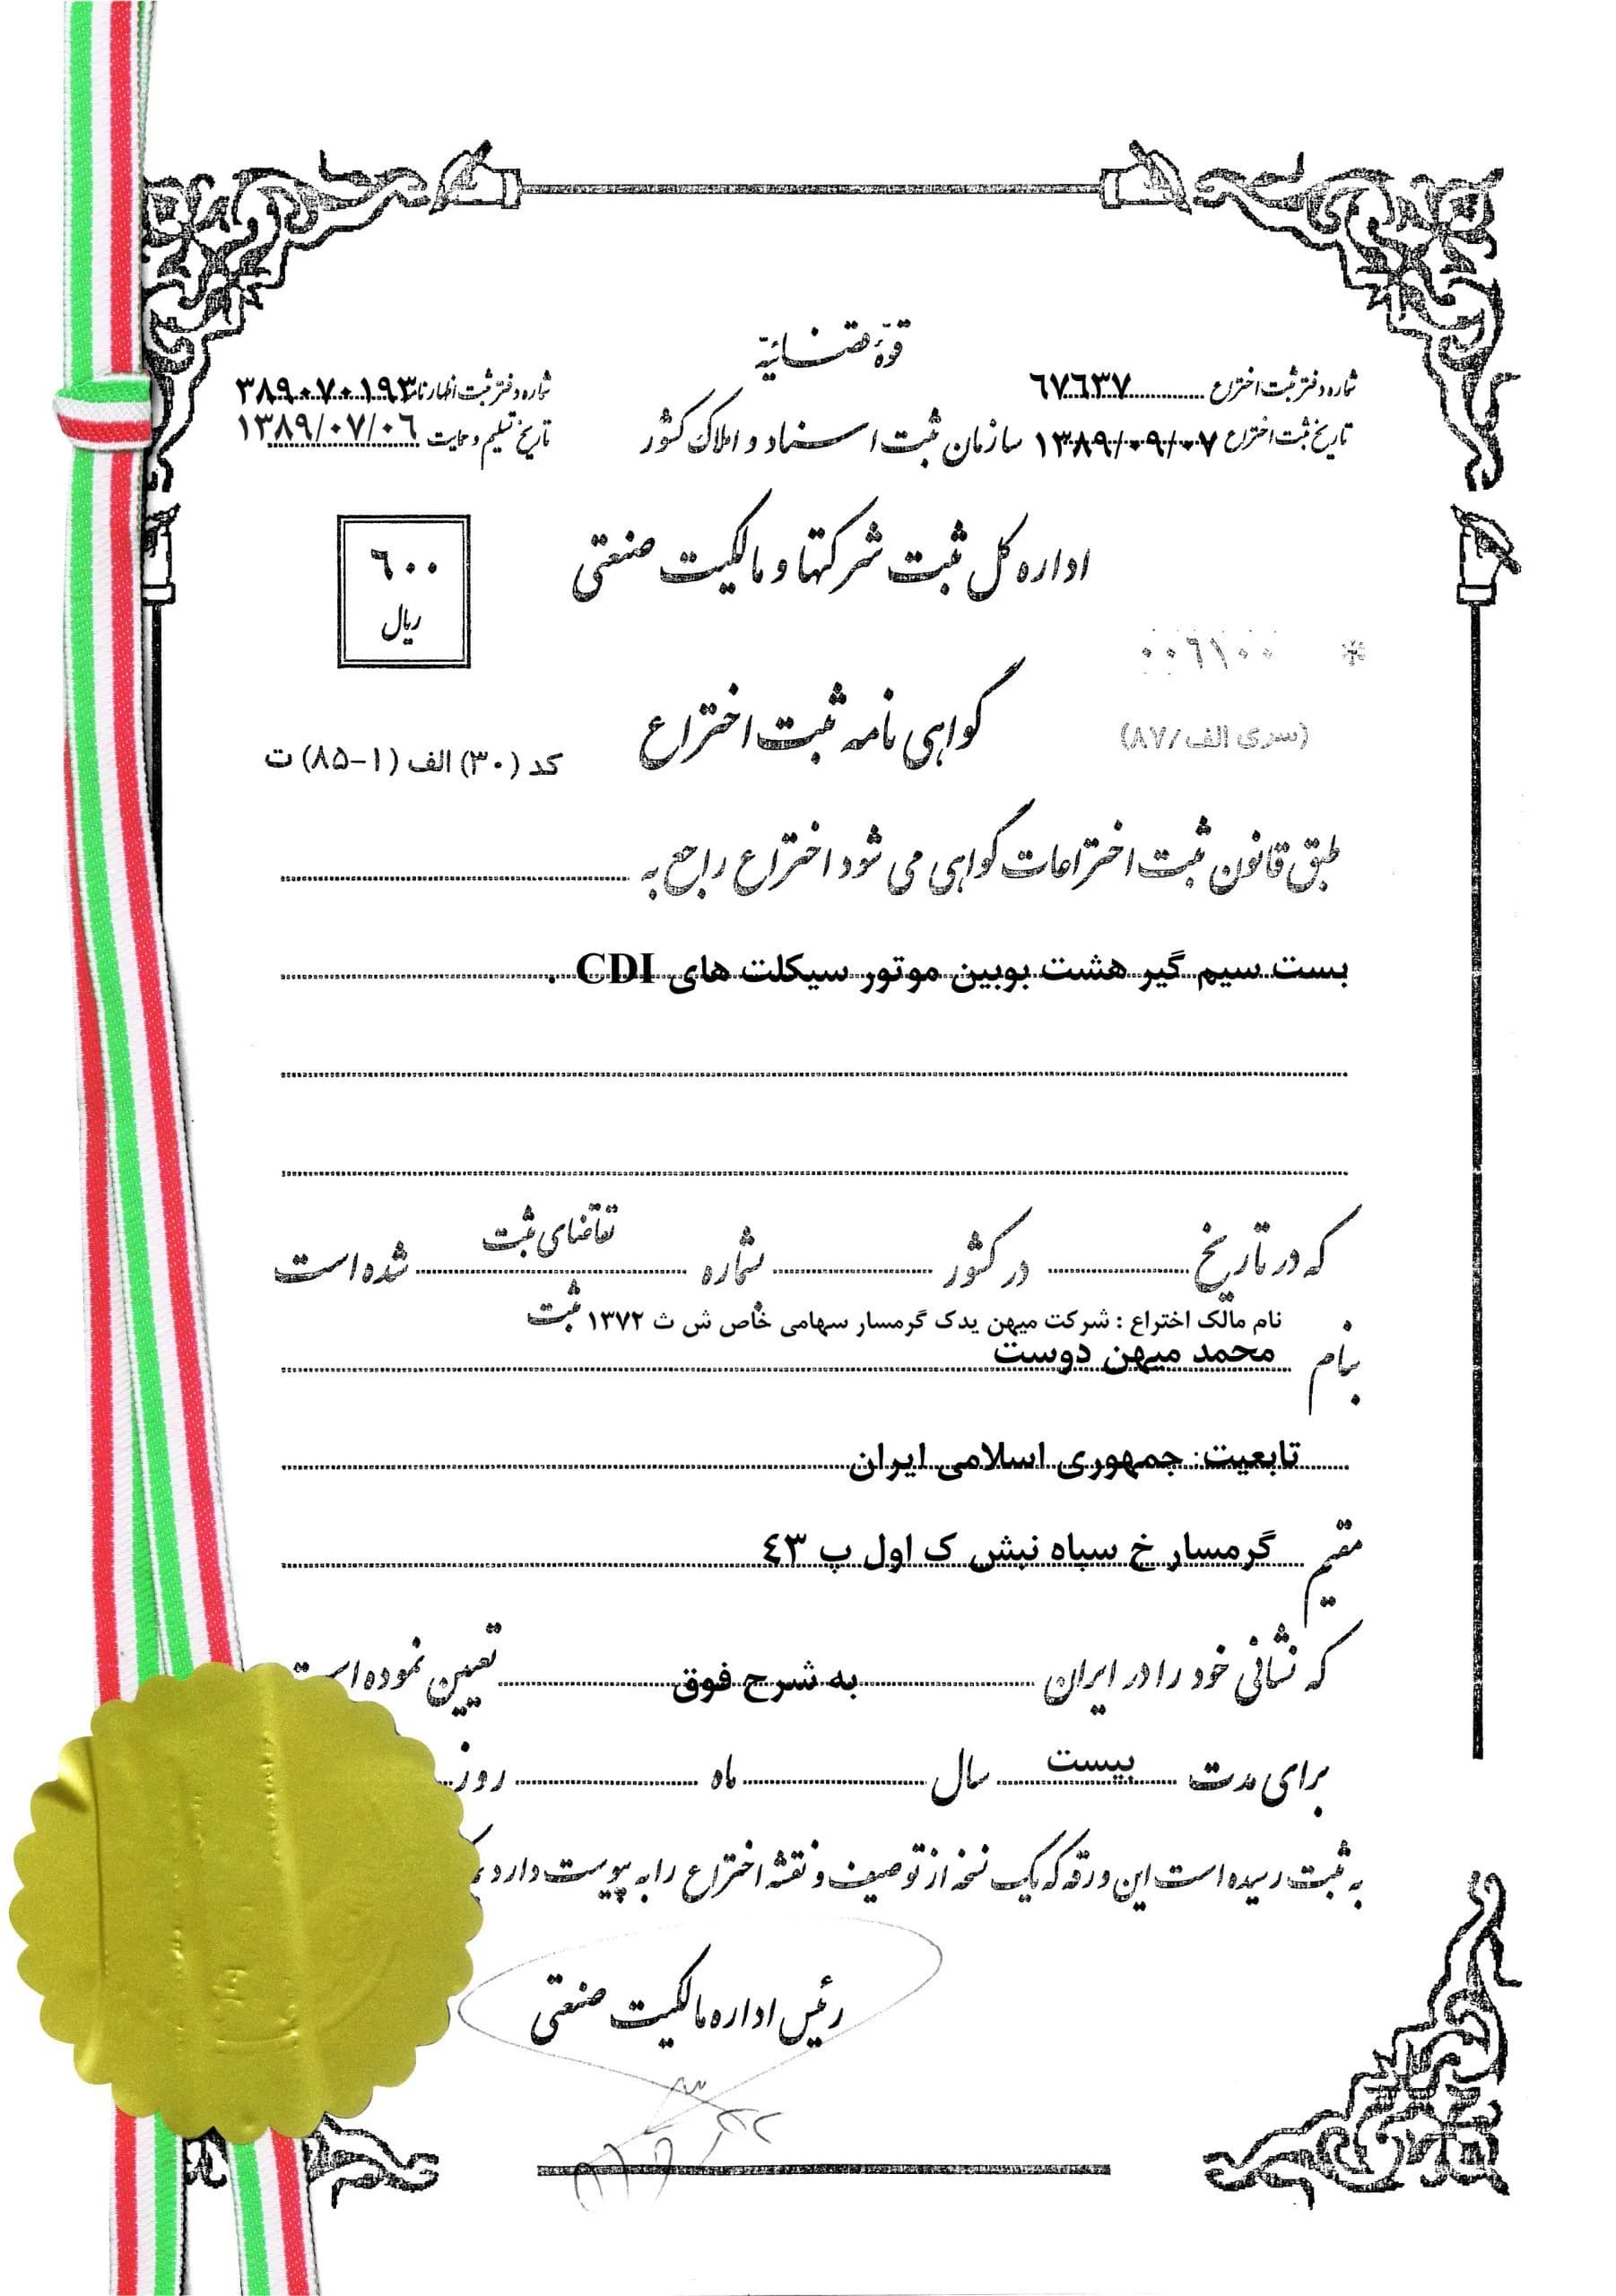 قوّهٔ قضائیّه
شماره دفتر ثبت اختراع ٦٧٦٣٧
شماره دفتر ثبت اظهارنامه ٣٨٩٠٧٠١٩٣
تاریخ ثبت اختراع ١٣٨٩/٠٩/٠٧
سازمان ثبت اسناد و املاک کشور
تاریخ تسلیم و حمایت ١٣٨٩/٠٧/٠٦
اداره کل ثبت شرکتها و مالکیت صنعتی
٦٠٠
ریال
* ٠٠٦١٠٠
(سری الف/٨٧)
گواهی نامه ثبت اختراع
کد (٣٠) الف (١-٨۵) ت
طبق قانون ثبت اختراعات گواهی می شود اختراع راجع به
بست سیم گیر هشت بوبین موتور سیکلت های CDI .
که در تاریخ در کشور شماره تقاضای ثبت شده است
ثبت
نام مالک اختراع : شرکت میهن یدک گرمسار سهامی خاص ش ث ١٣٧٢
بنام محمد میهن دوست
تابعیت: جمهوری اسلامی ایران
مقیم گرمسار خ سپاه نبش ک اول پ ٤٣
که نشانی خود را در ایران به شرح فوق تعیین نموده است
برای مدت بیست سال ماه روز
به ثبت رسیده است این ورقه که یک نسخه از توصیف و نقشه اختراع را به پیوست دارد
رئیس اداره مالکیت صنعتی